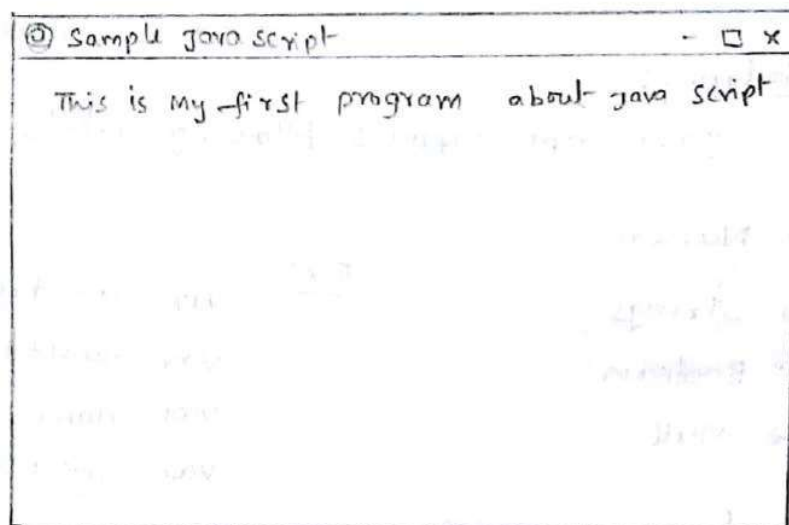 Sample Java script - □ x
This is My first program about Java script